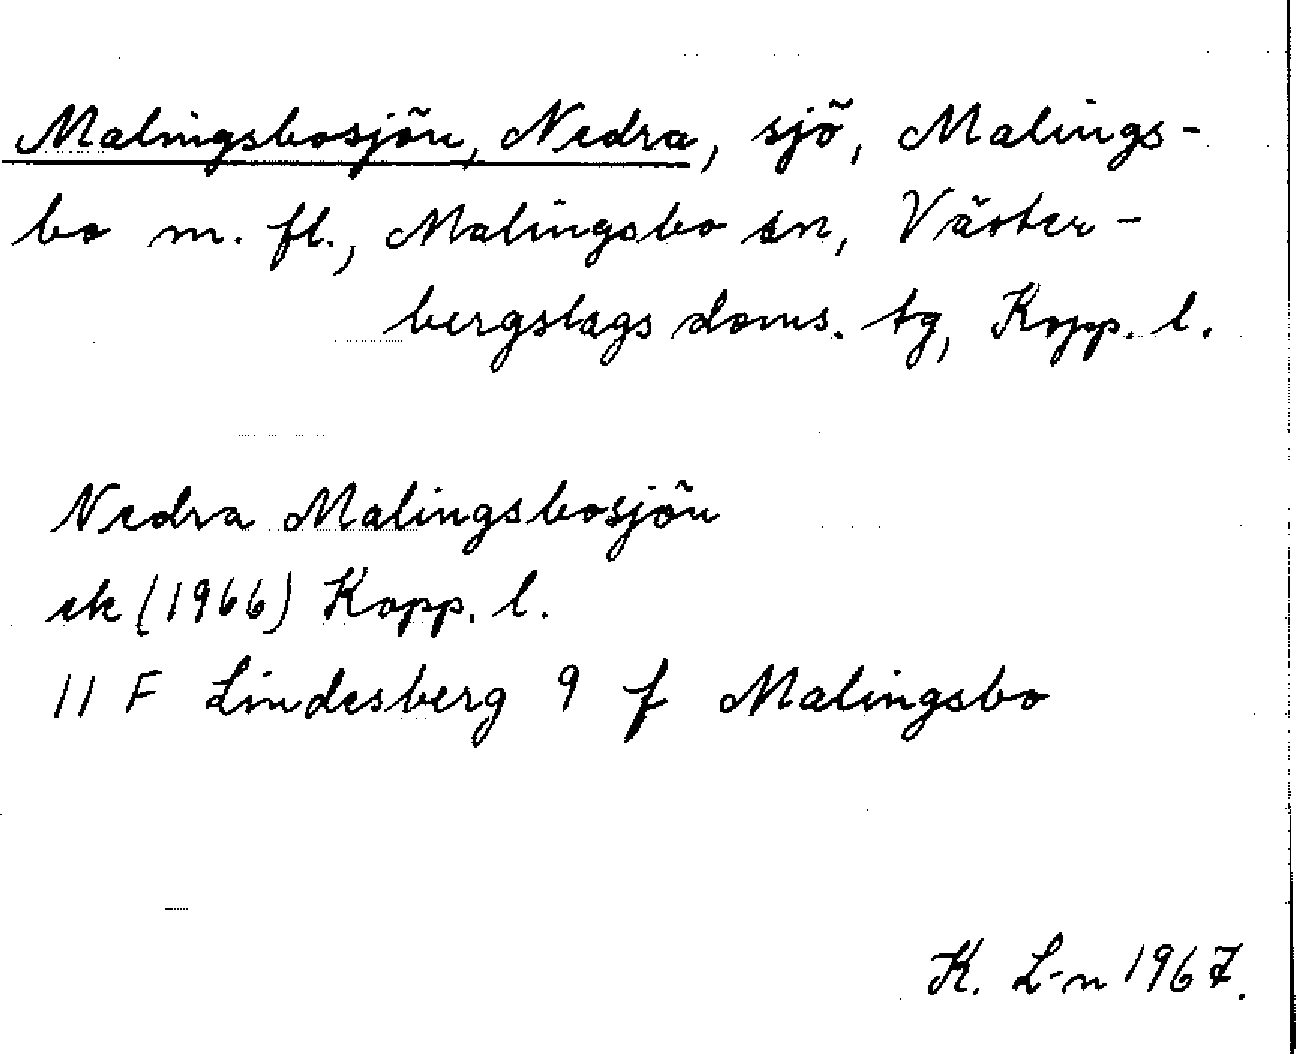 Malingsbosjön, Nedra, sjö, Malings-
bo m. fl., Malingsbo sn, Väster-
bergslags doms. tg, Kopp. l.
Nedra Malingsbosjön
ek (1966) Kopp. l.
11 F Lindesberg 9 f Malingsbo
K. L-n 1967.